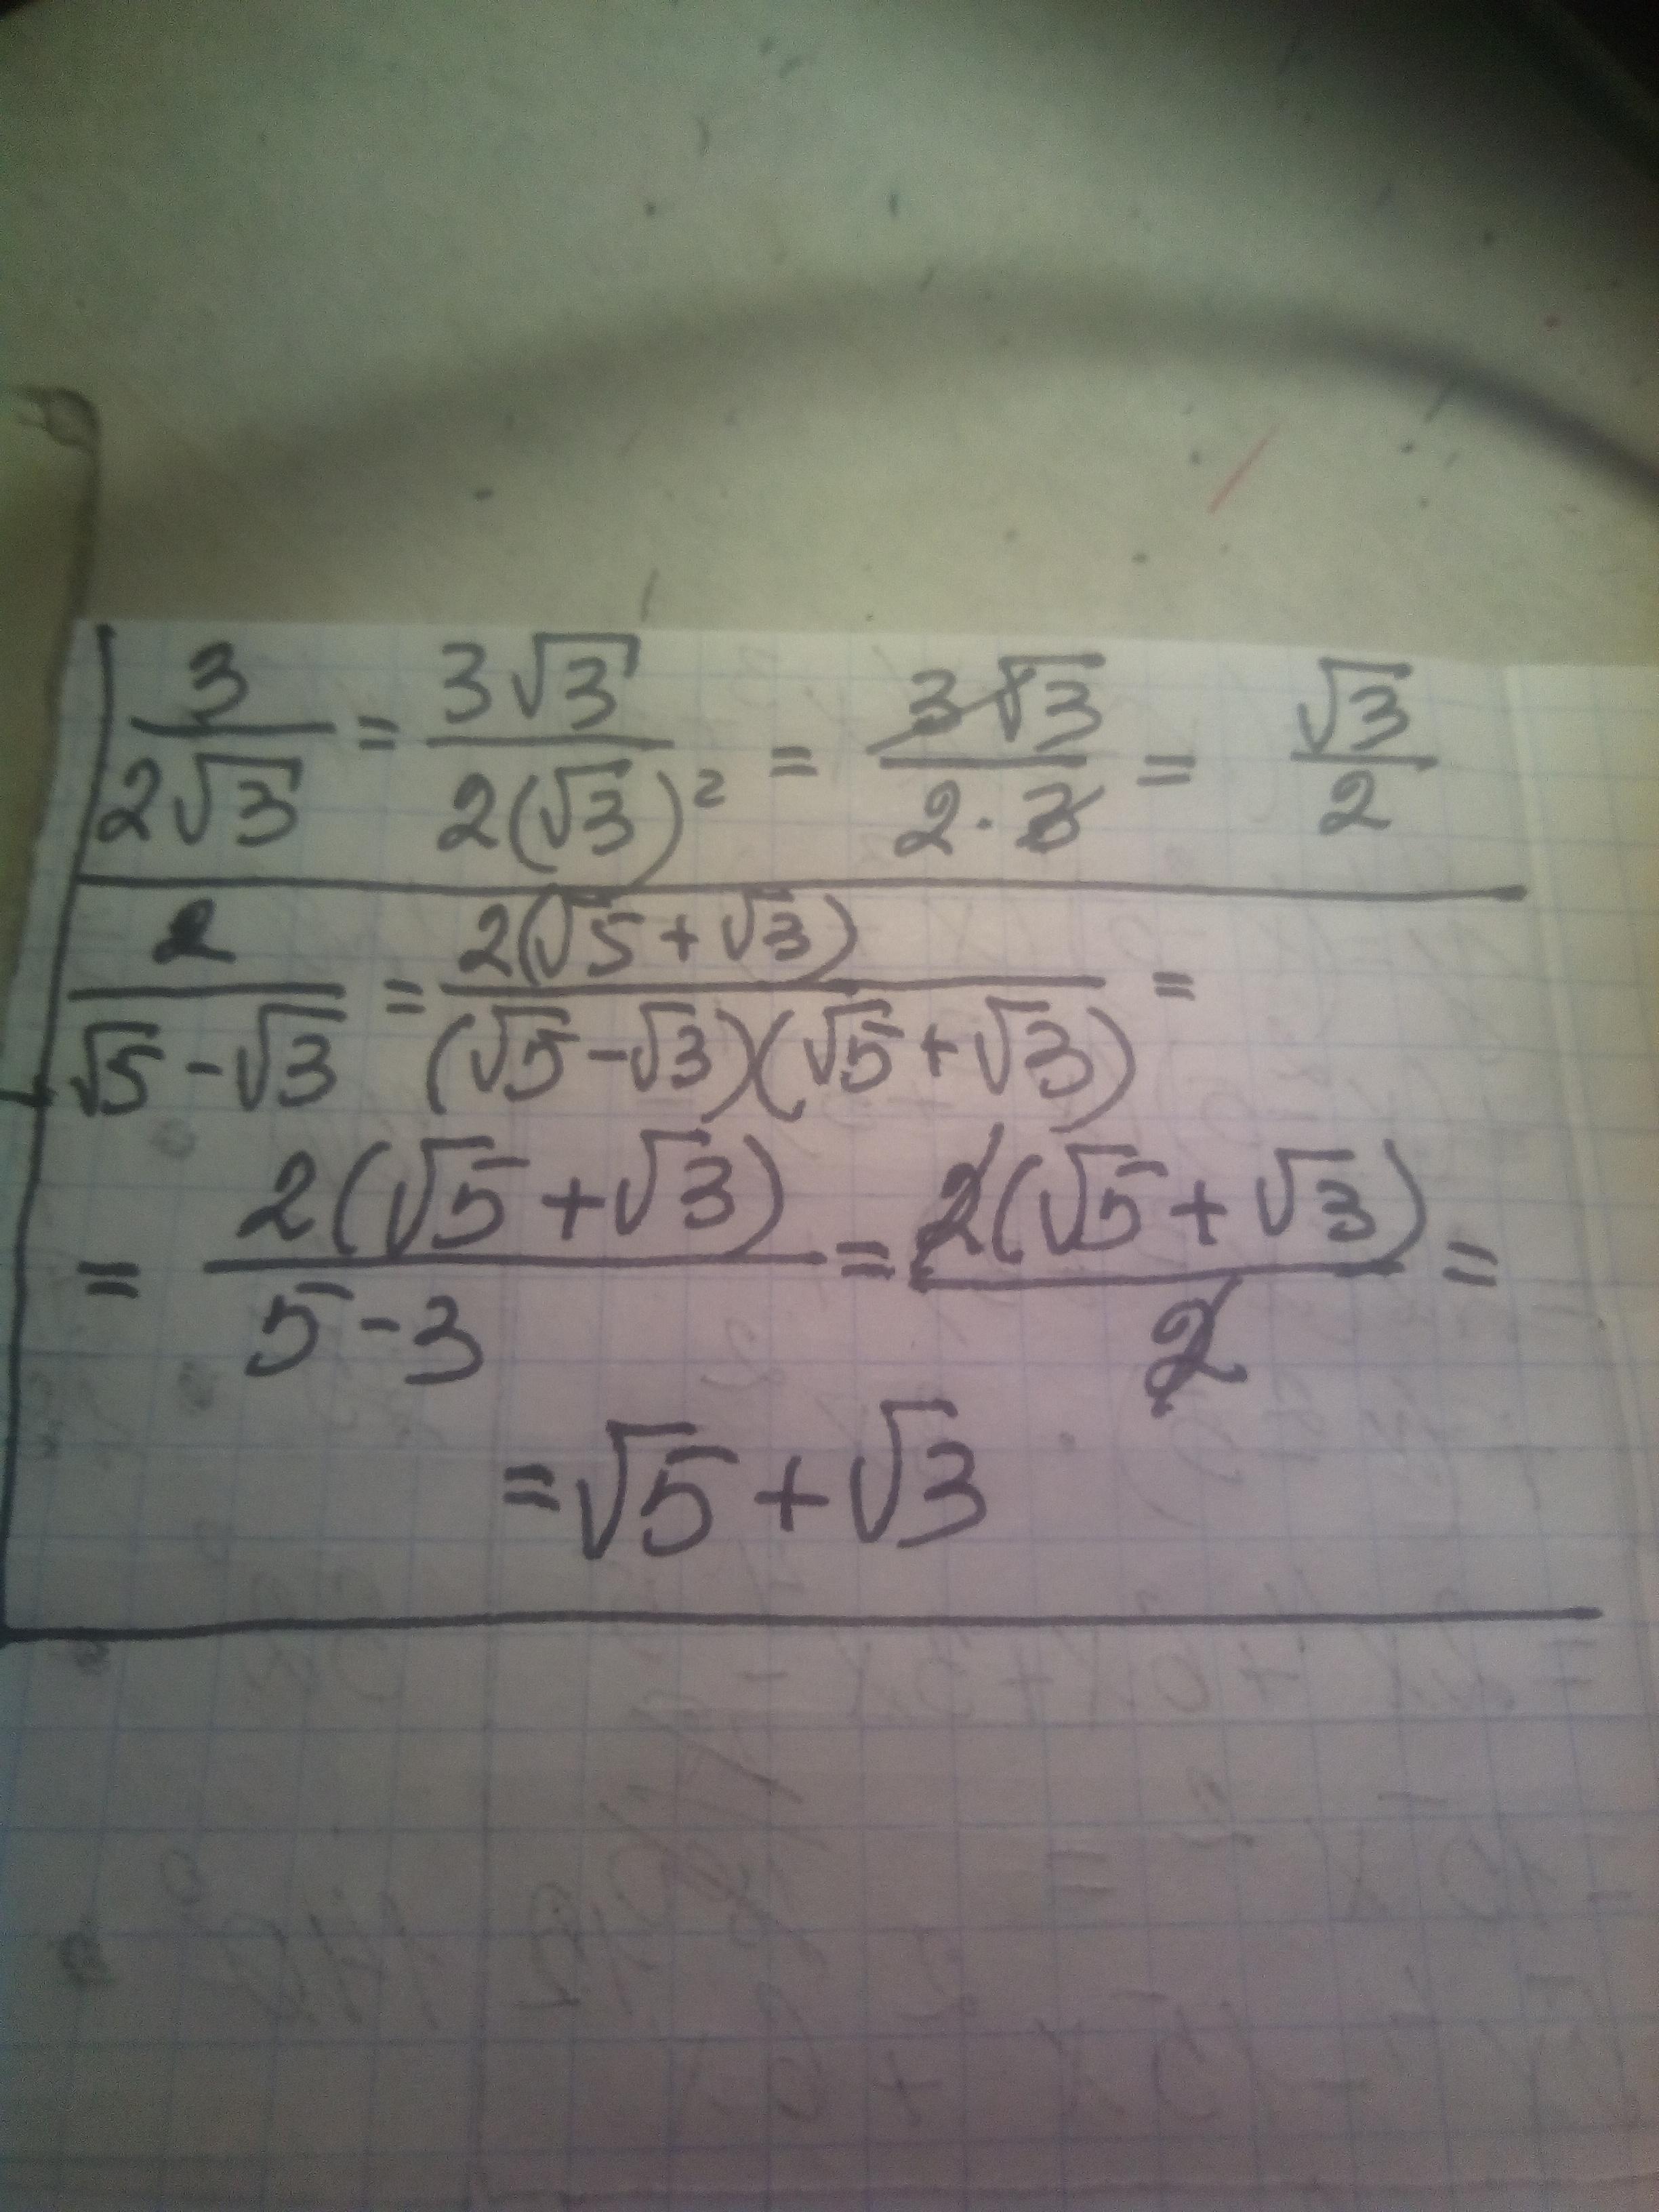 3/(2√3) = 3√3/(2(√3)²) = 3√3/(2·3) = √3/2
2/(√5-√3) = 2(√5+√3)/((√5-√3)(√5+√3)) =
= 2(√5+√3)/(5-3) = 2(√5+√3)/2 =
= √5+√3